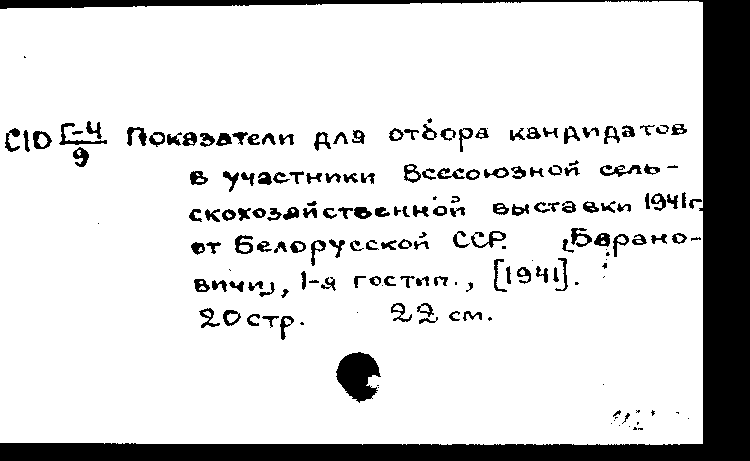 С10 Г-4/9 Показатели для отбора кандидатов
в участники Всесоюзной сель-
скохозяйственной выставки 1941г.
от Белорусской ССР. [Барано-
вичи], 1-я гостип., [1941].
20 стр. 22 см.